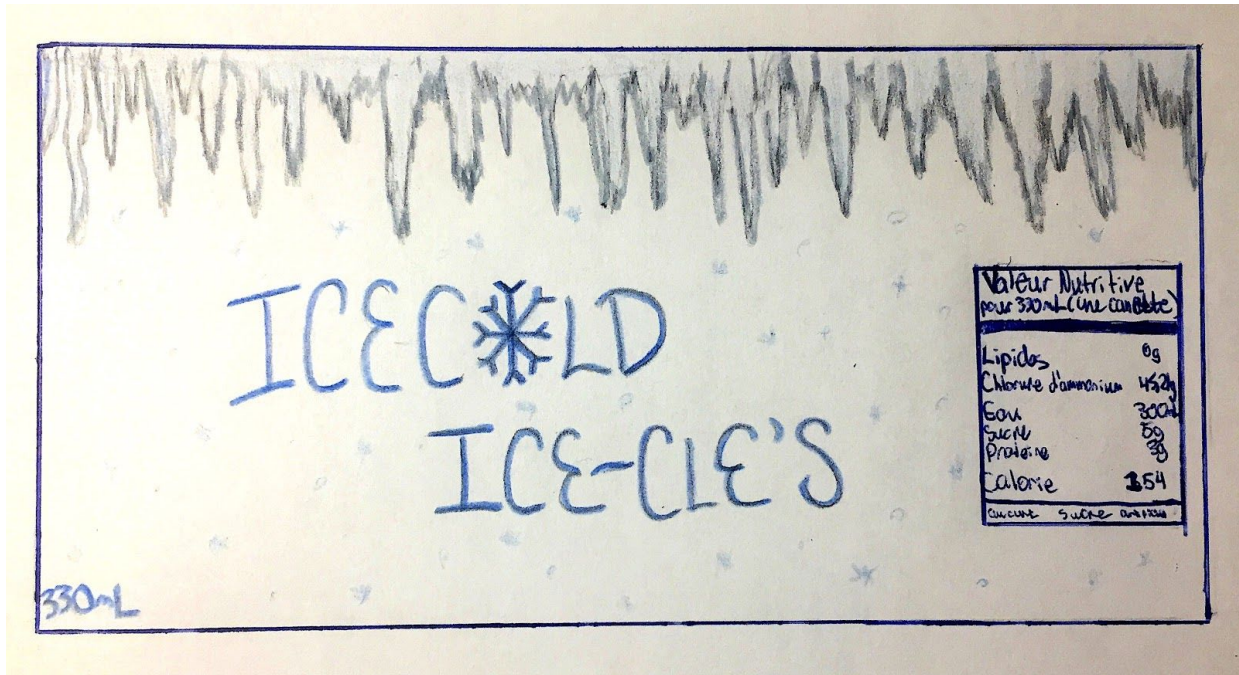 ICEC❄LD
ICE-CLE'S
330mL
Valeur Nutritive
pour 330mL (une canette)
Lipides 0g
Chlorure d'ammonium
Eau 300mL
Sucre 5g
Proteine 3g
Calorie 154
aucune sucre